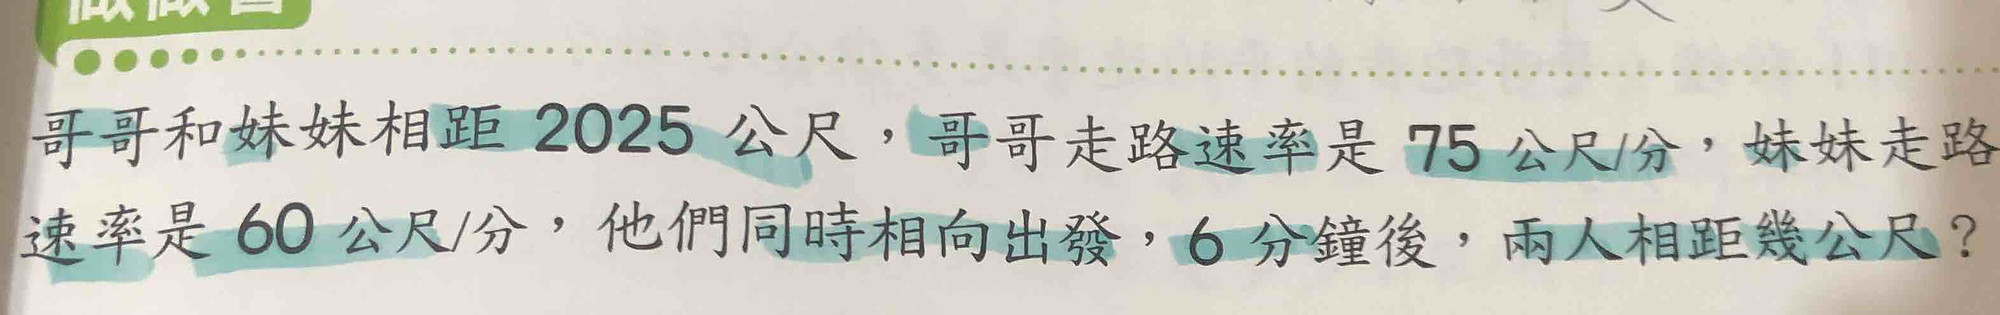 哥哥和妹妹相距 2025 公尺，哥哥走路速率是 75 公尺/分，妹妹走路
速率是 60 公尺/分，他們同時相向出發，6 分鐘後，兩人相距幾公尺？